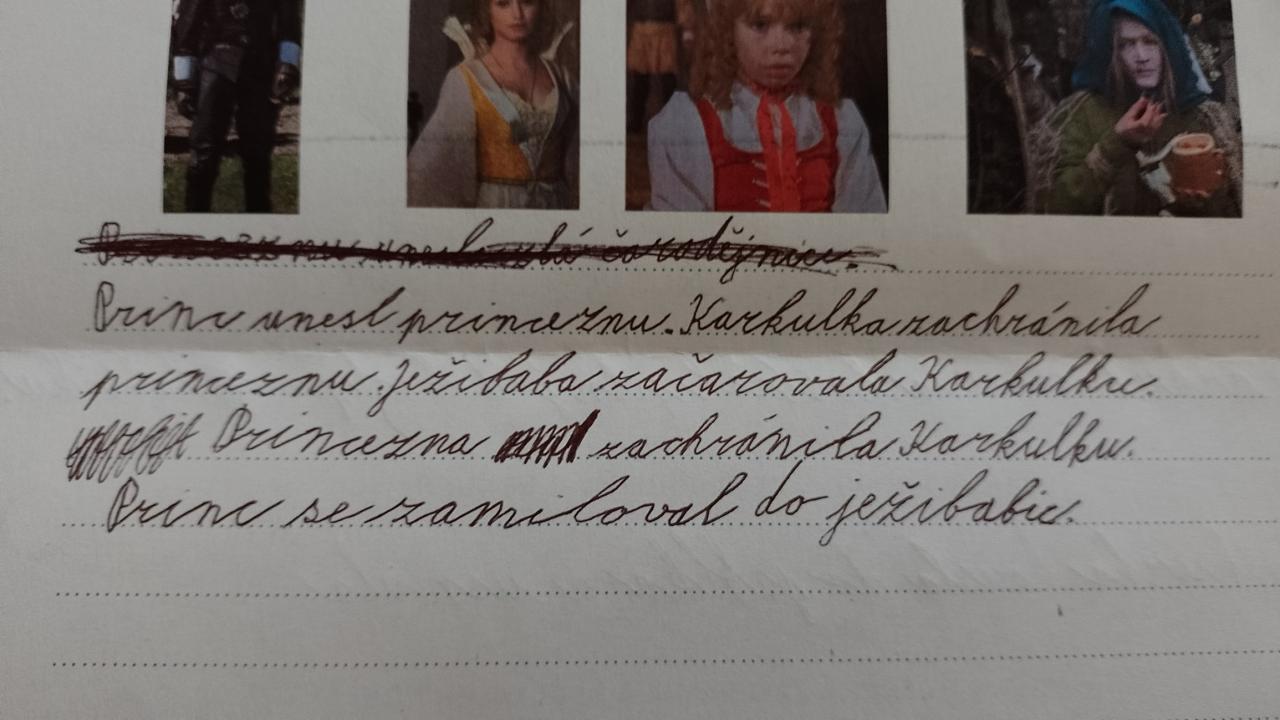 Princ unesl princeznu. Karkulka zachránila
princeznu. Ježibaba začarovala Karkulku.
Princezna zachránila Karkulku.
Princ se zamiloval do ježibabic.